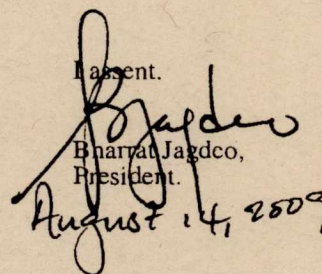 I assent.
BJagdeo
Bharrat Jagdeo,
President.
August 14, 2009